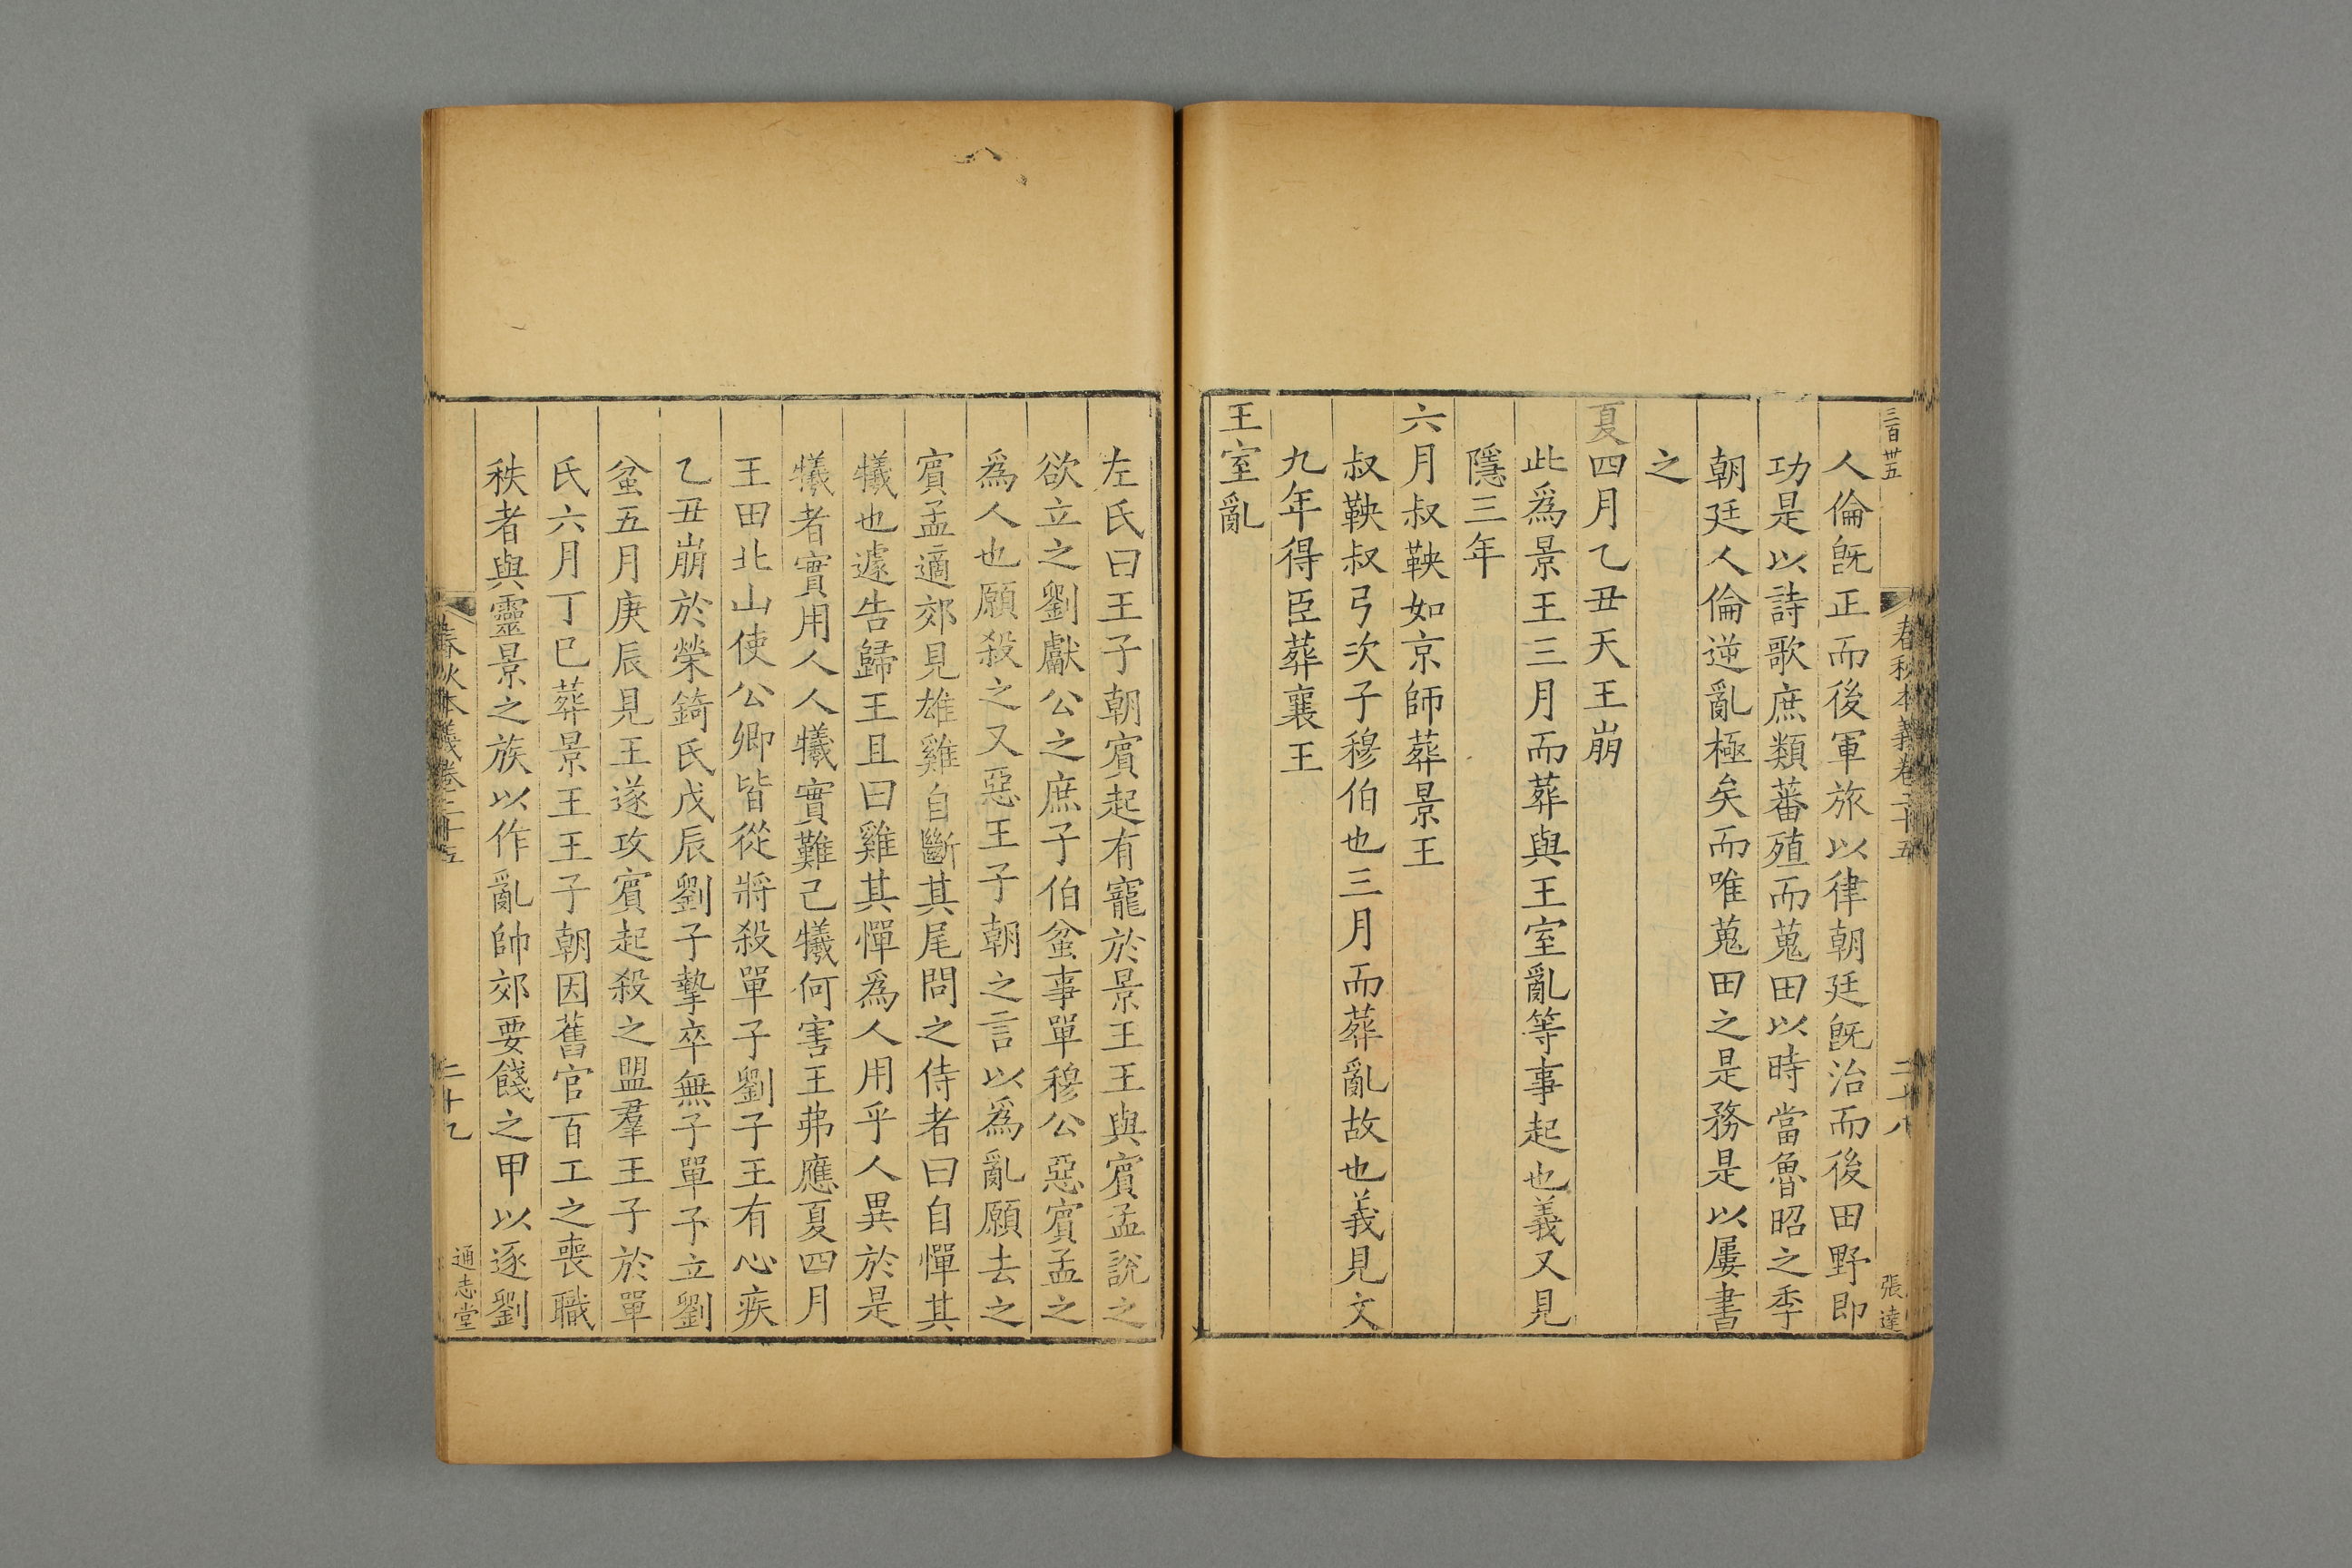 三百卅五
春秋本義卷二十五
二十八
張達
人倫旣正而後軍旅以律朝廷旣治而後田野即
功是以詩歌庶類蕃殖而蒐田以時當魯昭之季
朝廷人倫逆亂極矣而唯蒐田之是務是以屢書
之
夏四月乙丑天王崩
此爲景王三月而葬與王室亂等事起也義又見
隱三年
六月叔鞅如京師葬景王
叔鞅叔弓次子穆伯也三月而葬亂故也義見文
九年得臣葬襄王
王室亂
左氏曰王子朝賓起有寵於景王王與賓孟說之
欲立之劉獻公之庶子伯蚠事單穆公惡賓孟之
爲人也願殺之又惡王子朝之言以爲亂願去之
賓孟適郊見雄雞自斷其尾問之侍者曰自憚其
犧也遽告歸王且曰雞其憚爲人用乎人異於是
犧者實用人人犧實難己犧何害王弗應夏四月
王田北山使公卿皆從將殺單子劉子王有心疾
乙丑崩於榮錡氏戊辰劉子摯卒無子單子立劉
蚠五月庚辰見王遂攻賓起殺之盟羣王子於單
氏六月丁巳葬景王王子朝因舊官百工之喪職
秩者與靈景之族以作亂帥郊要餞之甲以逐劉
春秋本義卷二十五
二十九
通志堂